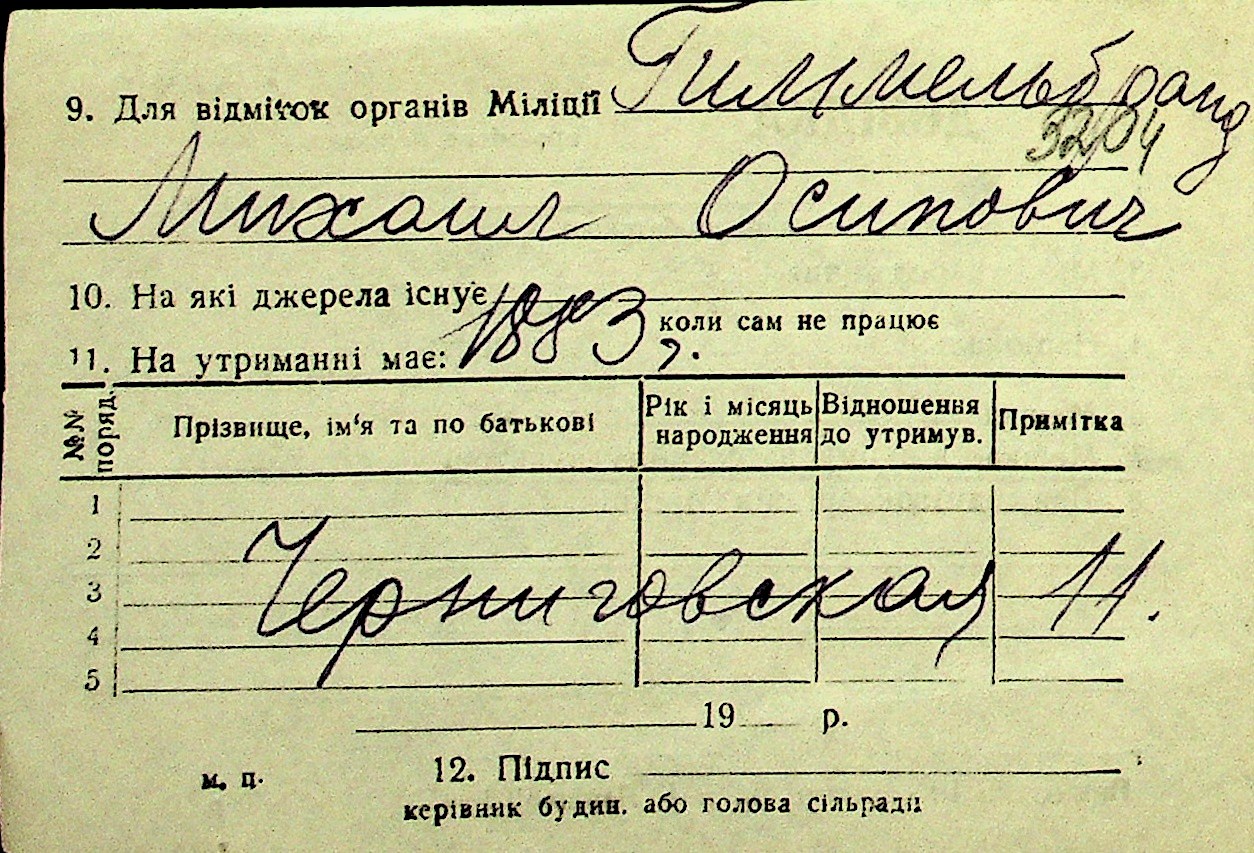 9. Для відміток органів Міліції Гиммельбранд
3204
Михаил Осипович
10. На які джерела існує
коли сам не працює
11. На утриманні має: 1883 г.
№№ поряд. Прізвище, ім'я та по батькові Рік і місяць народження Відношення до утримув. Примітка
1
2
3 Черниговская 11.
4
5
19 р.
м. п. 12. Підпис
керівник будин. або голова сільради